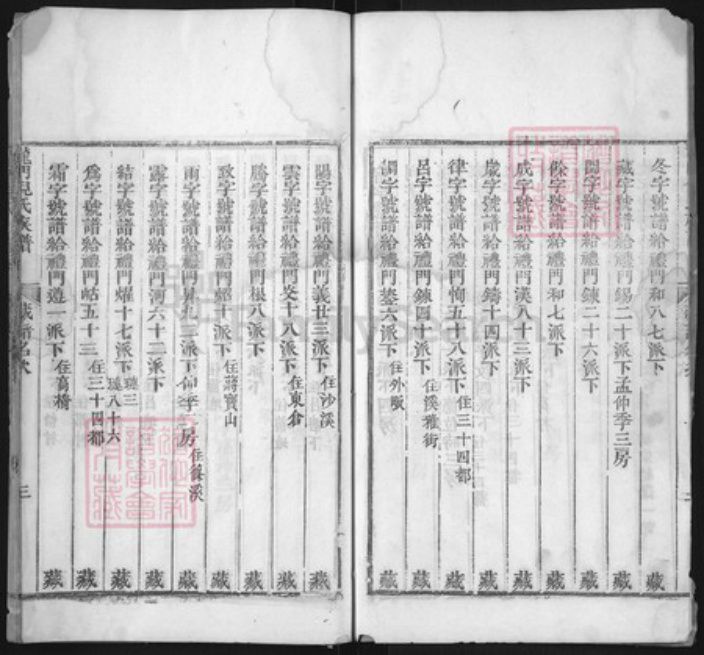 冬字號譜給禮門和八七派下 藏
藏字號譜給禮門錫二十派下孟仲季三房 藏
閏字號譜給禮門鍊二十六派下 藏
餘字號譜給禮門和七派下 藏
成字號譜給禮門漢八十三派下 藏
歲字號譜給禮門鑄十四派下 藏
律字號譜給禮門恂五十八派下住三十四都 藏
呂字號譜給禮門鍊四十派下住溪雅街 藏
調字號譜給禮門 六派下住外 藏
陽字號譜給禮門義廿三派下住沙溪 藏
雲字號譜給禮門 十八派下住東倉 藏
騰字號譜給禮門根八派下 藏
致字號譜給禮門炤十派下住蔣寶山 藏
雨字號譜給禮門 九三派下仲季二房住 溪 藏
露字號譜給禮門河六十二派下 藏
結字號譜給禮門燿十七派下 三 八十六 藏
為字號譜給禮門岵五十三住三十四都 藏
霜字號譜給禮門遵一派下住 橋 藏
氏族譜 藏譜名次 三